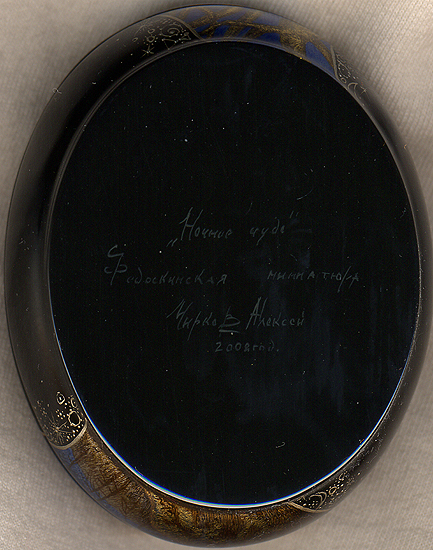 „Ночное чудо"
Федоскинская миниатюра
Чирков Алексей
2008 год.